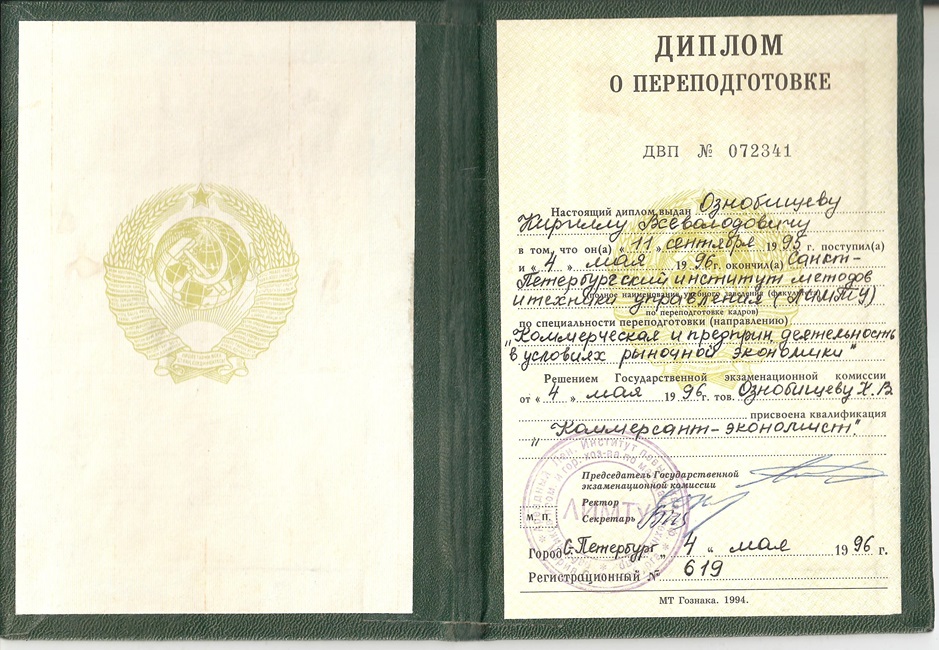 ДИПЛОМ
О ПЕРЕПОДГОТОВКЕ
ДВП № 072341
Настоящий диплом выдан Ознобищеву
Кириллу Всеволодовичу
в том, что он(а) « 11 » сентября 1995 г. поступил(а)
и « 4 » мая 1996 г. окончил(а) Санкт-
Петербургский институт методов
и техники управления (ЛИМТУ)
по переподготовке кадров)
по специальности переподготовки (направлению)
"Коммерческая и предприн деятельность
в условиях рыночной экономики"
Решением Государственной экзаменационной комиссии
от « 4 » мая 1996 г. тов. Ознобищеву К.В
присвоена квалификация
"Коммерсант-экономист".
Председатель Государственной
экзаменационной комиссии
Ректор
М. П.
Секретарь
ЛИМТУ
Город С.Петербург „ 4 " мая 1996 г.
Регистрационный № 619
МТ Гознака. 1994.